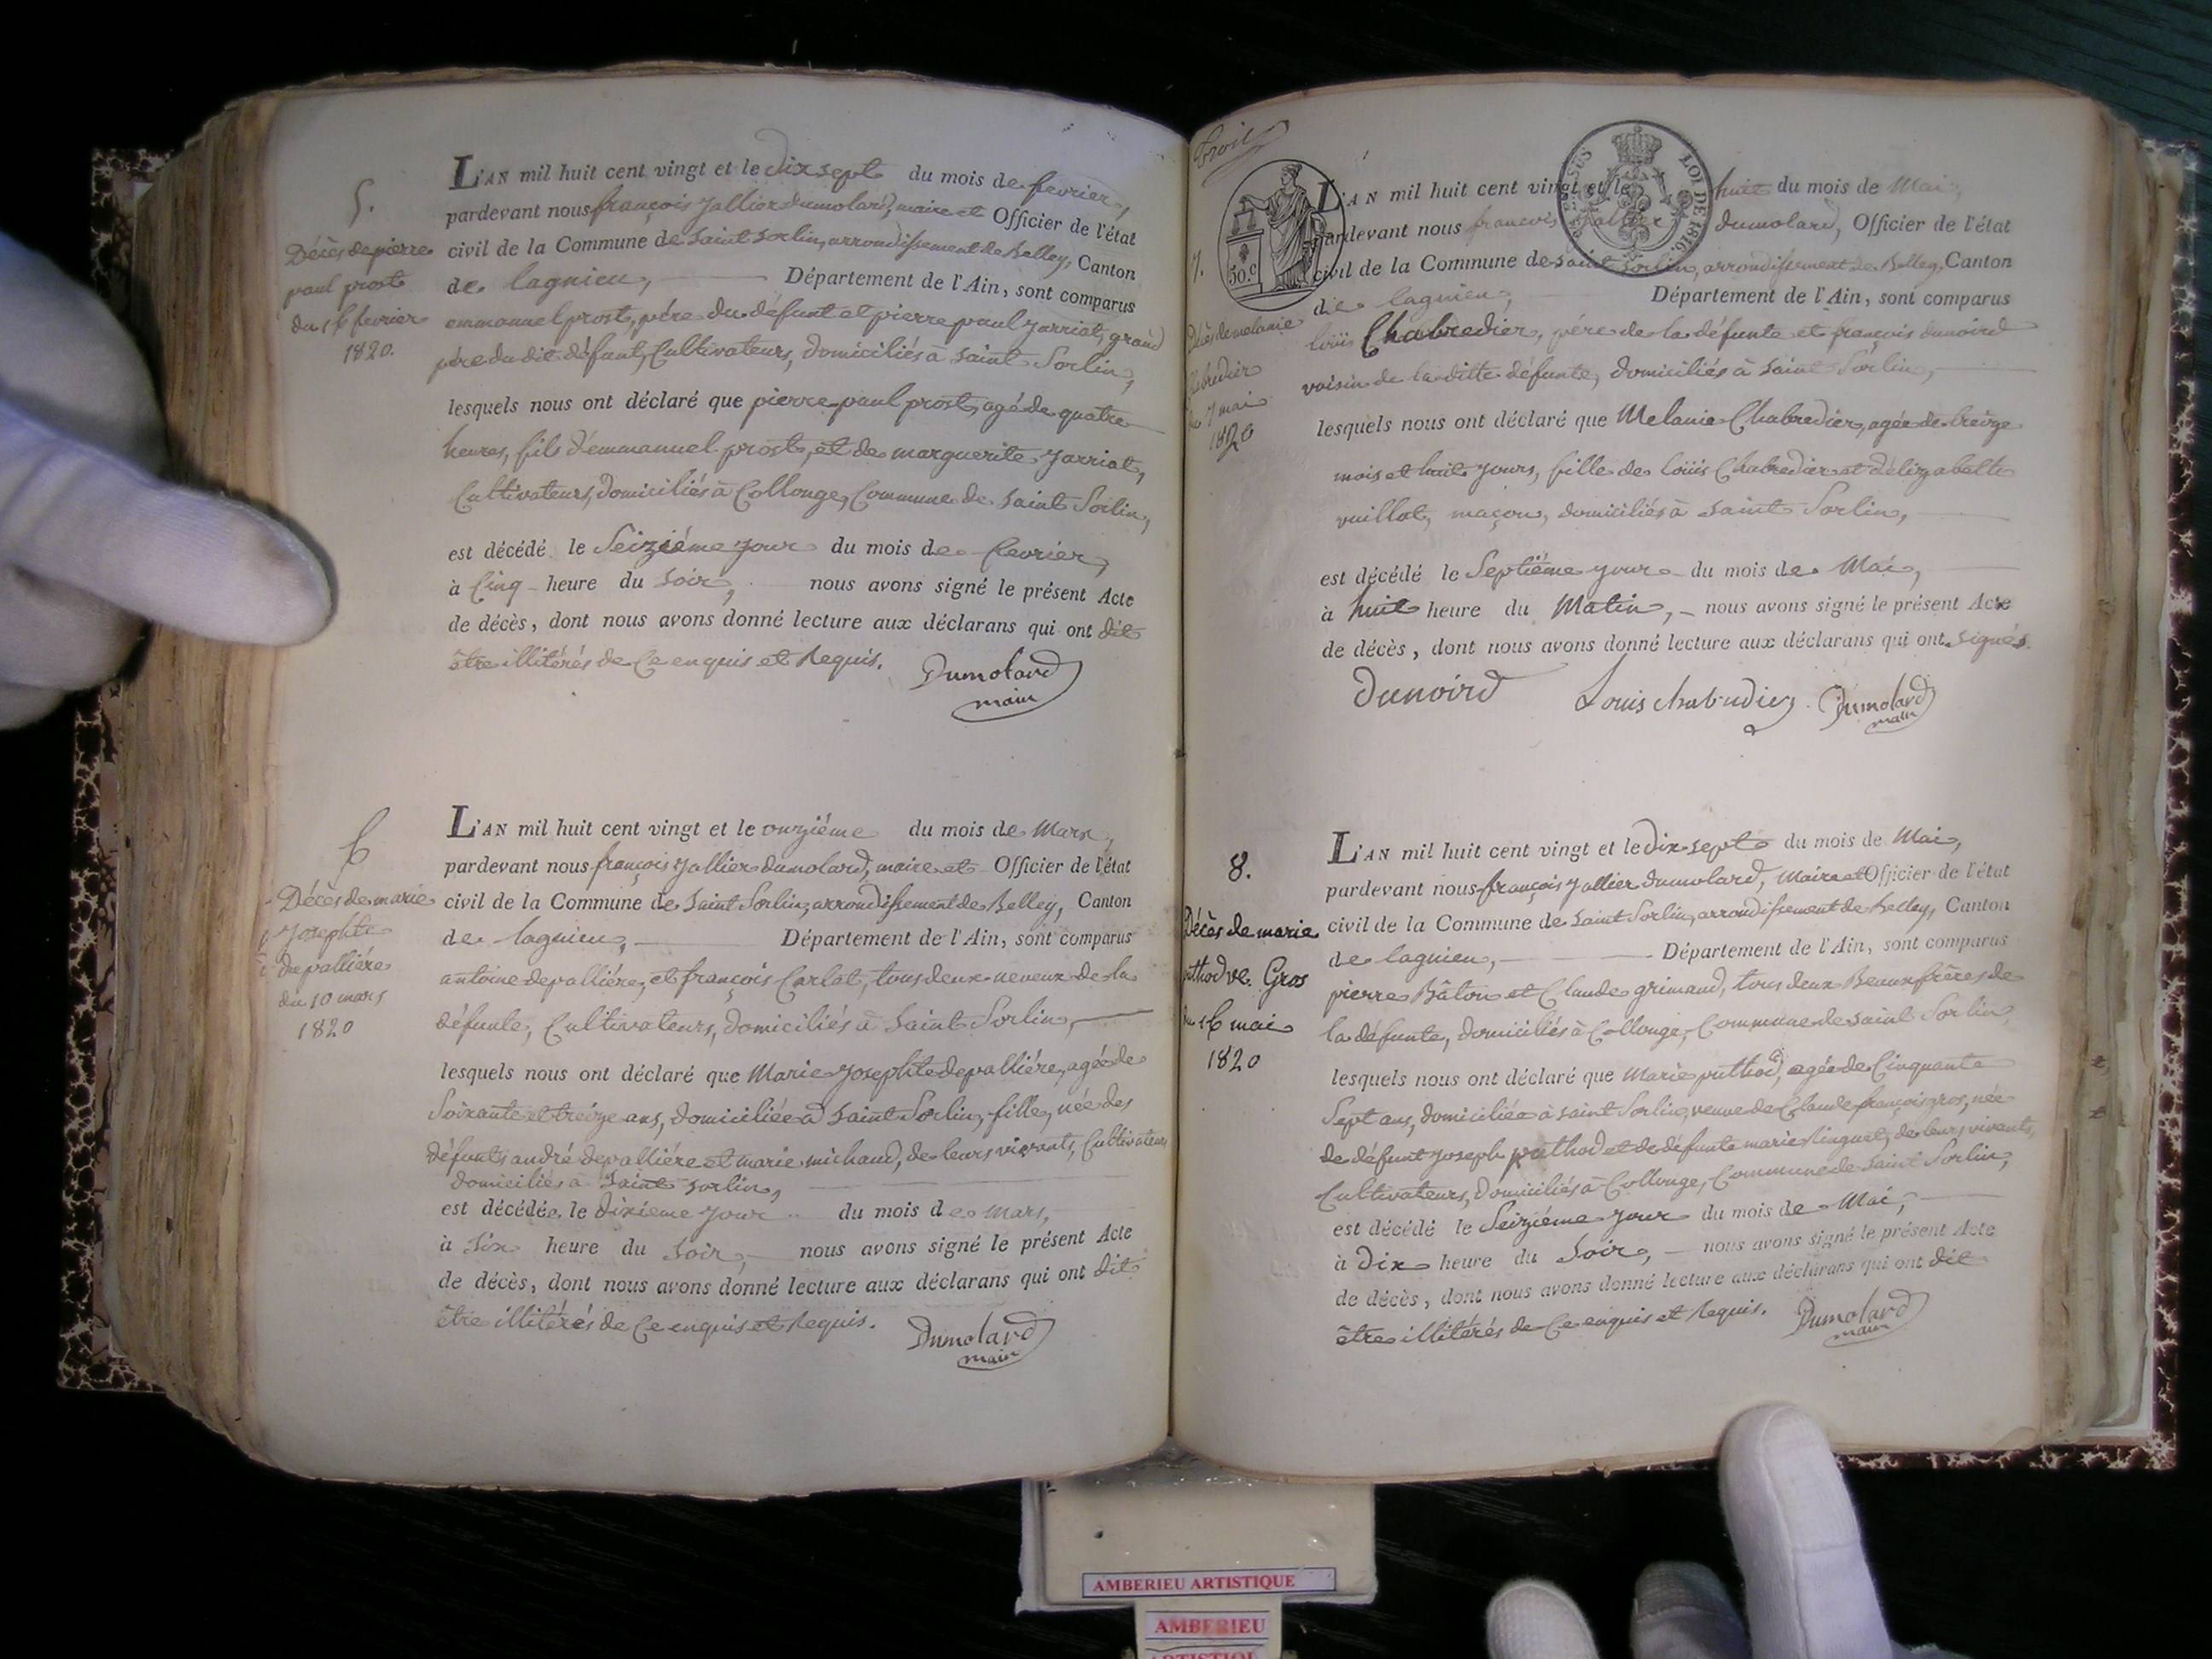 5.
Décès de pierre
paul prost
du 16 fevrier
1820.
L'AN mil huit cent vingt et le dix sept du mois de fevrier,
pardevant nous françois Jallier dumolard, maire et Officier de l'état
civil de la Commune de Saint Sorlin, arrondissement de Belley, Canton
de lagnieu, Département de l'Ain, sont comparus
emmanuel prost, pére du défunt et pierre paul Jarriat, grand
pére du dit défunt, Cultivateurs, domiciliés à Saint Sorlin,
lesquels nous ont déclaré que pierre paul prost, agé de quatre
heures, fils d'emmanuel prost, et de marguerite Jarriat,
Cultivateurs, domiciliés à Collonge, Commune de Saint Sorlin,
est décédé le Seiziéme jour du mois de fevrier,
à Cinq heure du Soir, nous avons signé le présent Acte
de décès, dont nous avons donné lecture aux déclarans qui ont dit
être illitérés de Ce enquis et Requis.
Dumolard
maire
6
Décès de marie
Josephte
depalliére
du 10 mars
1820
L'AN mil huit cent vingt et le onziéme du mois de Mars,
pardevant nous françois Jallier dumolard, maire et Officier de l'état
civil de la Commune de Saint Sorlin, arrondissement de Belley, Canton
de lagnieu, Département de l'Ain, sont comparus
antoine depalliére, et françois Carlat, tous deux neveux de la
défunte, Cultivateurs, domiciliés à Saint Sorlin,
lesquels nous ont déclaré que Marie Josephte depalliére, agée de
Soixante et treize ans, domiciliée à Saint Sorlin, fille, née des
défunts andré depalliére et marie michaud, de leurs vivants, Cultivateurs
domiciliés à Saint Sorlin,
est décédée le dixieme jour du mois de mars,
à Six heure du Soir, nous avons signé le présent Acte
de décès, dont nous avons donné lecture aux déclarans qui ont dit
être illitérés de Ce enquis et Requis.
Dumolard
maire
Troit
50.c
SUS
LOI DE 1816.
7.
Décès de melanie
Chabredier
du 7 mai
1820
L'AN mil huit cent vingt et le huit du mois de Mai,
pardevant nous francois Jallier dumolard, Officier de l'état
civil de la Commune de Saint Sorlin, arrondissement de Belley, Canton
de lagnieu, Département de l'Ain, sont comparus
loüis Chabredier, pére de la défunte et françois dunoird
voisin de la ditte défunte, domiciliés à Saint Sorlin,
lesquels nous ont déclaré que Melanie Chabredier, agée de treize
mois et huit jours, fille de loüis Chabredier et d'élizabette
vuillot, maçon, domiciliés à Saint Sorlin,
est décédé le Septiéme jour du mois de Mai,
à huit heure du Matin, nous avons signé le présent Acte
de décès, dont nous avons donné lecture aux déclarans qui ont Signés.
dunoird Louis chabrudier Dumolard
maire
8.
Décès de marie
puthod ve. Gros
du 16 mai
1820
L'AN mil huit cent vingt et le dix sept du mois de Mai,
pardevant nous françois Jallier dumolard, Maire et Officier de l'état
civil de la Commune de Saint Sorlin, arrondissement de belley, Canton
de lagnieu, Département de l'Ain, sont comparus
pierre Bâton et Claude grimand, tous deux Beauxfrères de
la défunte, domiciliés à Collonge, Commune de Saint Sorlin
lesquels nous ont déclaré que Marie puthod, agée de Cinquante
Sept ans, domiciliée à Saint Sorlin, veuve de Claude françois gros, née
de défunt Joseph puthod et de défunte marie linguet, de leurs vivants,
Cultivateurs, domiciliés à Collonge, Commune de Saint Sorlin,
est décédé le Seiziéme jour du mois de Mai,
à Dix heure du Soir, nous avons signé le présent Acte
de décès, dont nous avons donné lecture aux déclarans qui ont dit
être illitérés de Ce enquis et Requis.
Dumolard
maire
AMBERIEU ARTISTIQUE
AMBERIEU
ARTISTIQUE